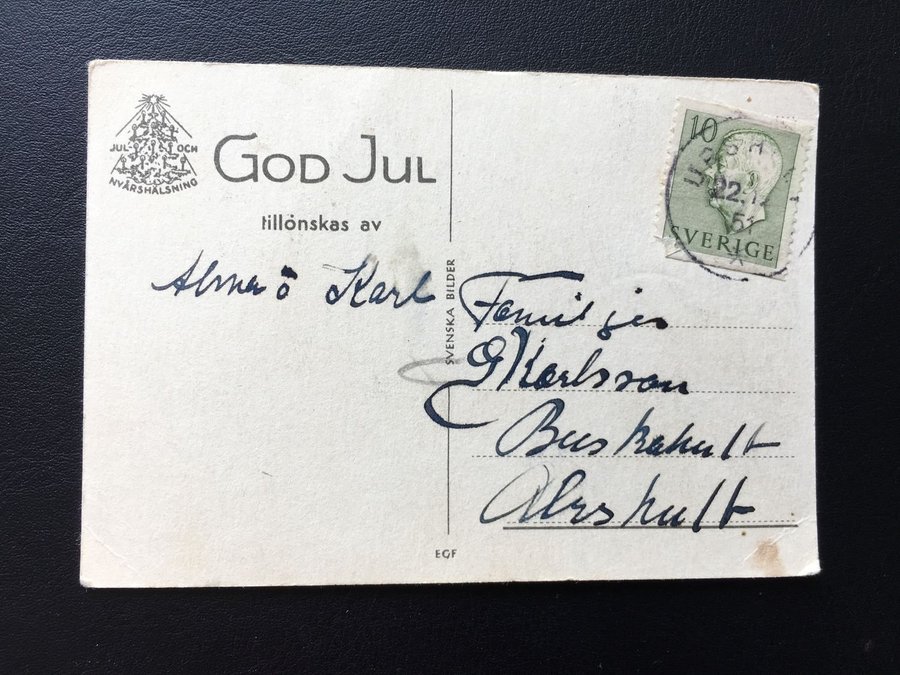 JUL OCH
NYÅRSHÄLSNING
GOD JUL
tillönskas av
Alma o Karl
SVENSKA BILDER
EGF
10
22.12
51
SVERIGE
Familjen
G Karlsson
Buskahult
Alshult